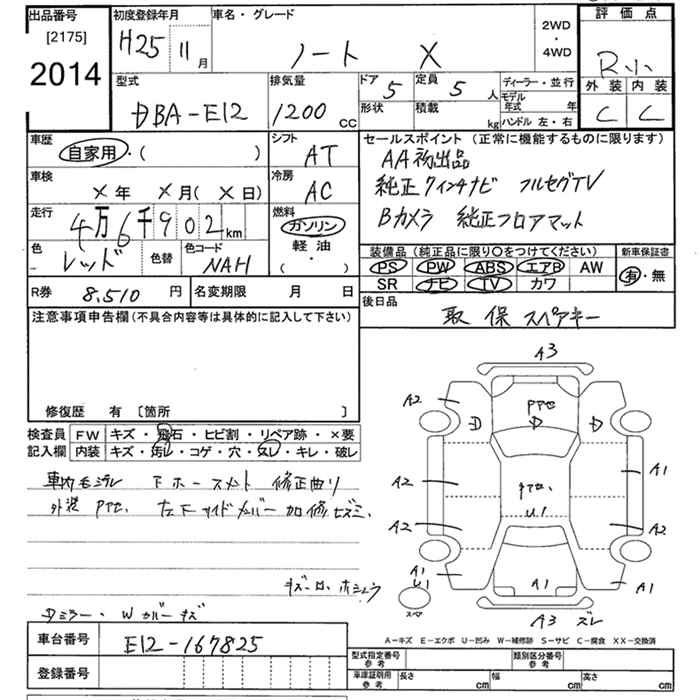 出品番号
[2175]
2014
初度登録年月
H25 11月
車名・グレード
ノート X
2WD
・
4WD
評価点
R
外装 内装
C C
型式
DBA-E12
排気量
1200 CC
ドア 5
定員 5 人
形状
積載 kg
ディーラー・並行
モデル年式 年
ハンドル 左・右
車歴
自家用・( )
シフト
AT
車検
×年 ×月(×日)
冷房
AC
走行
4万6千902km
燃料
ガソリン
軽油・
( ・ )
色
レッド
色替
色コード
NAH
セールスポイント (正常に機能するものに限ります)
AA初出品
純正7インチナビ フルセグTV
Bカメラ 純正フロアマット
装備品(純正品に限り〇をつけてください)
PS PW ABS エアB AW
SR ナビ TV カワ
新車保証書
有・無
R券 8.510 円
名変期限 月 日
後日品
取 保 スペアキー
注意事項申告欄(不具合内容等は具体的に記入して下さい)
修復歴 有 〔箇所 〕
検査員
記入欄
FW キズ・飛石・ヒビ割・リペア跡・×要
内装 キズ・汚レ・コゲ・穴・スレ・キレ・破レ
下ホースメント 修正曲り
外装 Pアセ、 左下サイドメンバー加修
Dミラー・Wカバーキズ
A3
A2
Pアセ
D
D
D
A2
Pアセ、
U1
A1
A2
A2
A1
U1
A1
A1
A3 ズレ
スペア
A－キズ E－エクボ U－凹み W－補修跡 S－サビ C－腐食 XX－交換済
車台番号 E12-167825
登録番号
型式指定番号
参考
類別区分番号
参考
車庫証明用
参考
長さ cm
幅 cm
高さ cm